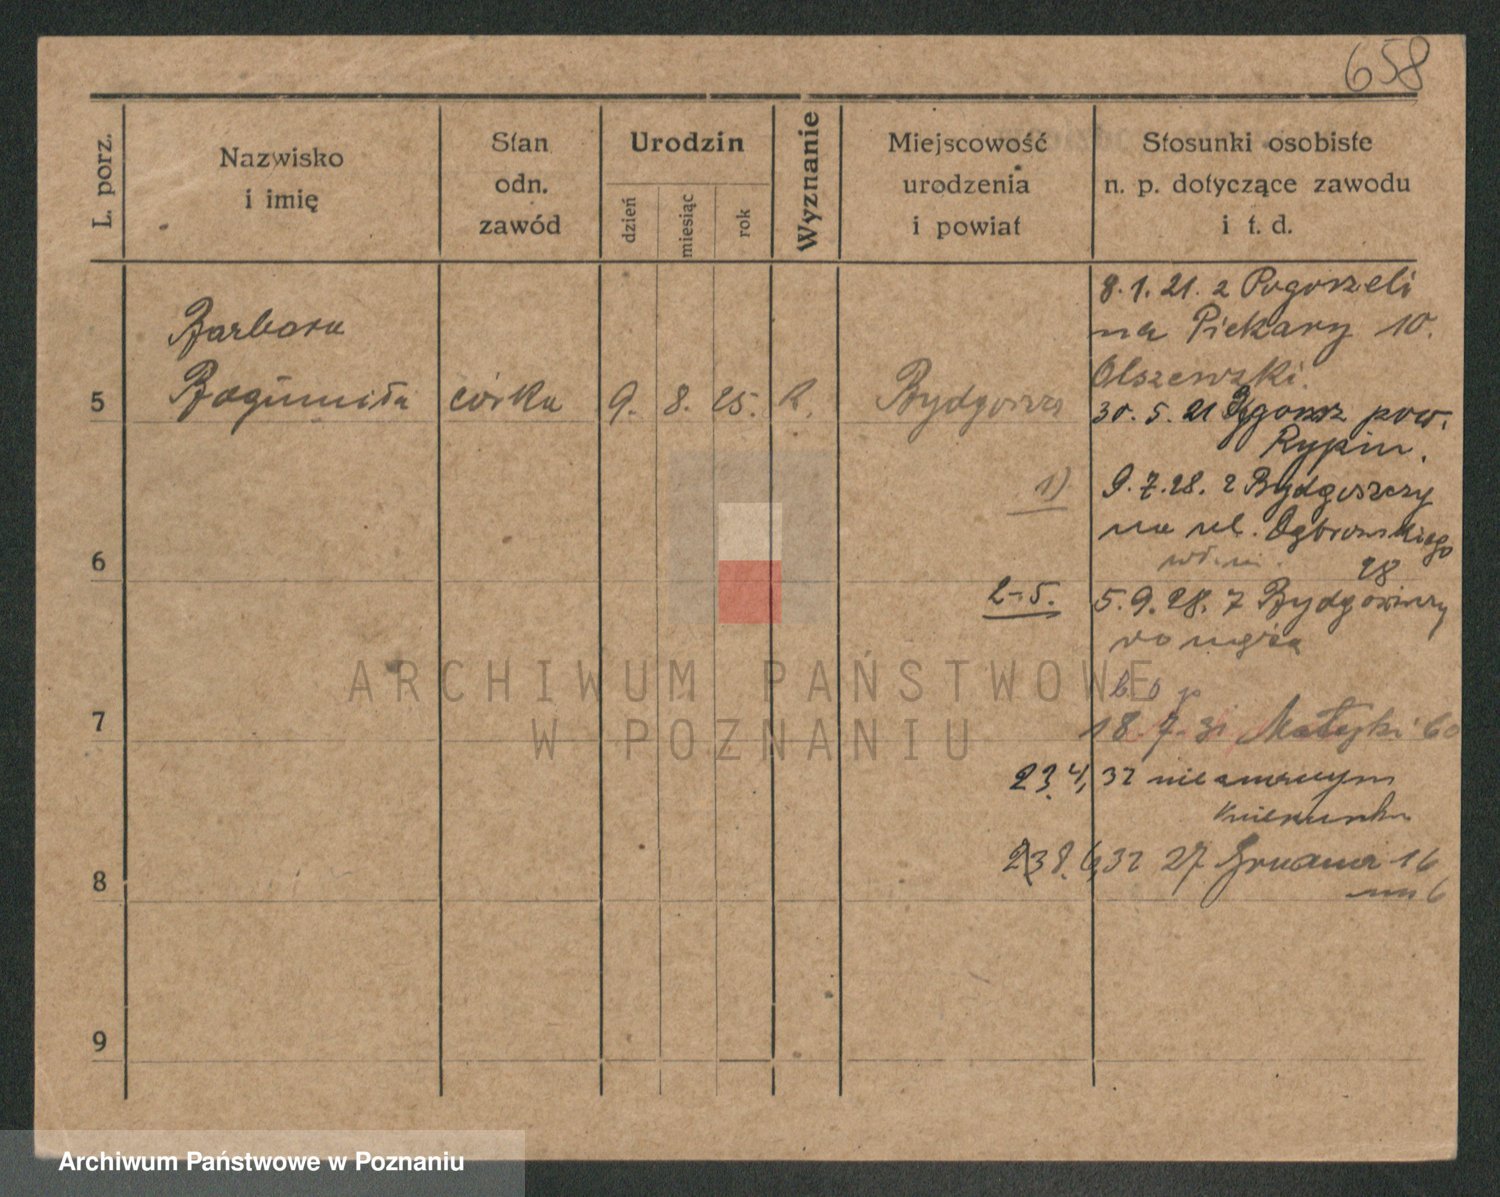 658
L. porz.
Nazwisko
i imię
Stan
odn.
zawód
Urodzin
dzień
miesiąc
rok
Wyznanie
Miejscowość
urodzenia
i powiat
Stosunki osobiste
n. p. dotyczące zawodu
i t. d.
8.1.21. z Pogorzeli
na Piekary 10.
Olszewski.
Barbara
5 Bogumiła córka 9. 8. 25. R. Bydgoszcz
30.5.21 pow.
Rypin.
1) 9.7.28. z Bydgoszczy
na ul. Dąbrowskiego
28
6
2-5. 5.9.28. z Bydgoszczy
do męża
b o p
7
18.7.31 Matejki 60
23.4.32 nieznanym
kierunku
8
8.6.32 27 Grudnia 16
m 6
9
ARCHIWUM PAŃSTWOWE
W POZNANIU
Archiwum Państwowe w Poznaniu